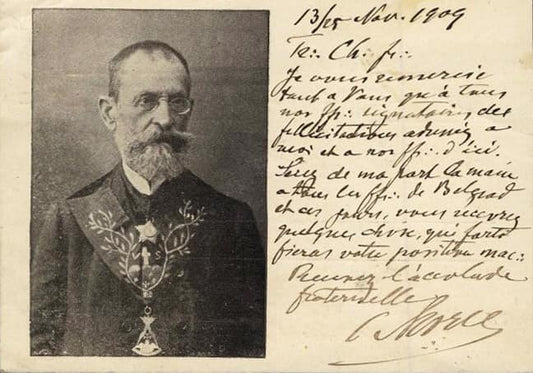 13/25 Nov. 1909
Tr∴ Ch∴ fr∴
Je vous remercie
tant à Vous qu'à tous
nos ff∴ signataires des
félicitations à
moi et à nos ff∴ d'ici.
de ma part la main
à tous les ff∴ de Belgrad
et ces jours, vous recevrez
quelque chose, qui
votre position maç∴
Recevez l'accolade
fraternelle